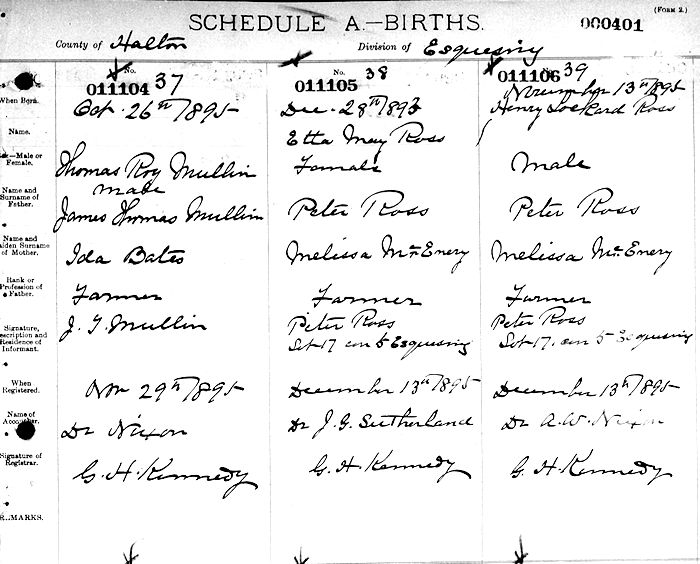 (FORM 2.)
SCHEDULE A.—BIRTHS.
000401
County of Halton
Division of Esquesing
No.
011104 37
No.
011105 38
No.
011106 39
When Born.
Oct. 26th 1895
Dec. 28th 1893
November 13th 1895
Name.
Thomas Roy Mullin
Etta May Ross
Henry Lockard Ross
Sex—Male or
Female.
male
Female
Male
Name and
Surname of
Father.
James Thomas Mullin
Peter Ross
Peter Ross
Name and
Maiden Surname
of Mother.
Ida Bates
Melissa McEnery
Melissa McEnery
Rank or
Profession of
Father.
Farmer
Farmer
Farmer
Signature,
Description and
Residence of
Informant.
J. T. Mullin
Peter Ross
Lot 17 con 5 Esquesing
Peter Ross
Lot 17. con 5 Esquesing
When
Registered.
Nov 29th 1895
December 13th 1895
December 13th 1895
Name of
Accoucher.
Dr Nixon
Dr J. G. Sutherland
Dr A. W. Nixon
Signature of
Registrar.
G. H. Kennedy
G. H. Kennedy
G. H. Kennedy
REMARKS.